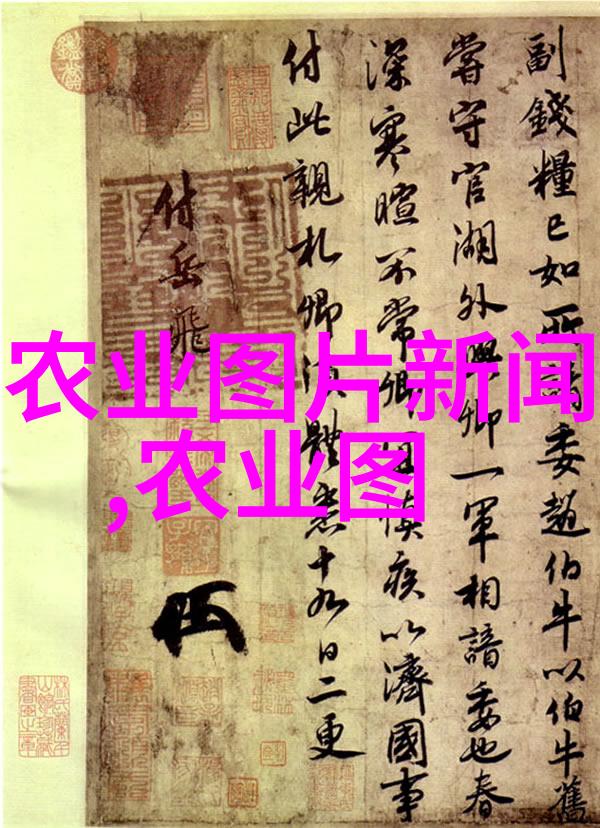 农业图片新闻
,农业图
副錢糧已如所請委趙伯牛以伯牛舊
嘗守官湖外與卿一軍相諳委也春
深寒暄不常卿宜慎疾以濟國事
付此親札卿須體悉十九日二更
付岳飛